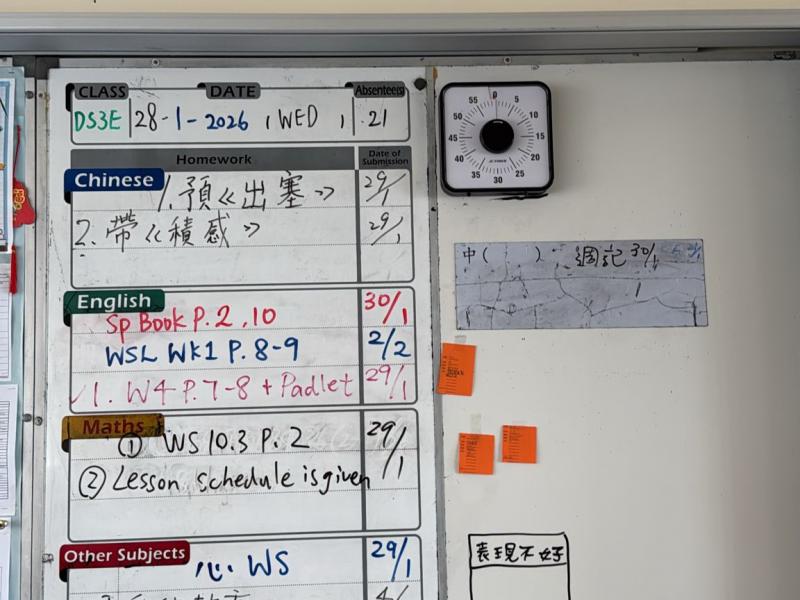 CLASS DATE Absentee(s)
DS3E 28-1-2026 (WED) 21
Homework Date of Submission
Chinese
1. 預《出塞》 29/1
2. 帶《積感》 29/1
English
Sp Book P. 2, 10 30/1
WSL WK1 P. 8-9 2/2
✓1. W4 P.7-8 + Padlet 29/1
Maths
① WS 10.3 P. 2 29/1
② Lesson schedule is given
Other Subjects
心. WS 29/1
0 5 10 15 20 25 30 35 40 45 50 55
中( ) 週記 30/1
表現不好